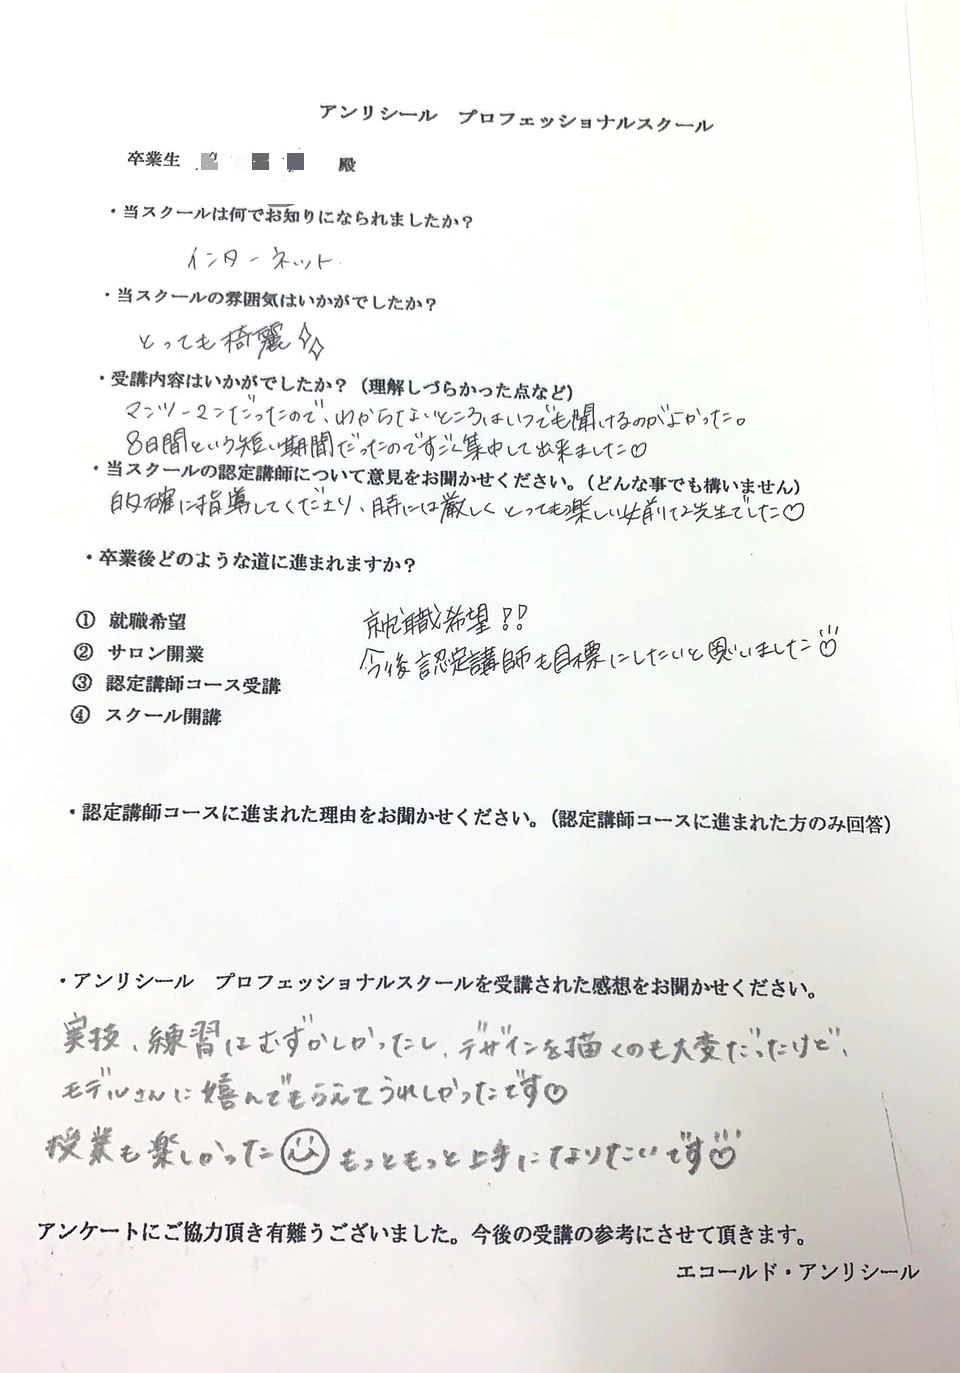 アンリシール　プロフェッショナルスクール
卒業生　殿
・当スクールは何でお知りになられましたか？
インターネット
・当スクールの雰囲気はいかがでしたか？
とっても綺麗
・受講内容はいかがでしたか？（理解しづらかった点など）
マンツーマンだったので、わからないところはいつでも聞けるのがよかった。
8日間という短い期間だったのですごく集中して出来ました♡
・当スクールの認定講師について意見をお聞かせください。（どんな事でも構いません）
的確に指導してくださり、時には厳しくとっても楽しい先生でした♡
・卒業後どのような道に進まれますか？
① 就職希望
就職希望!!
② サロン開業
今後認定講師も目標にしたいと思いました
③ 認定講師コース受講
④ スクール開講
・認定講師コースに進まれた理由をお聞かせください。（認定講師コースに進まれた方のみ回答）
・アンリシール　プロフェッショナルスクールを受講された感想をお聞かせください。
実技、練習はむずかしかったし、デザインを描くのも大変だったけど、
モデルさんに嬉んでもらえてうれしかったです♡
授業も楽しかった もっともっと上手になりたいです
アンケートにご協力頂き有難うございました。今後の受講の参考にさせて頂きます。
エコールド・アンリシール